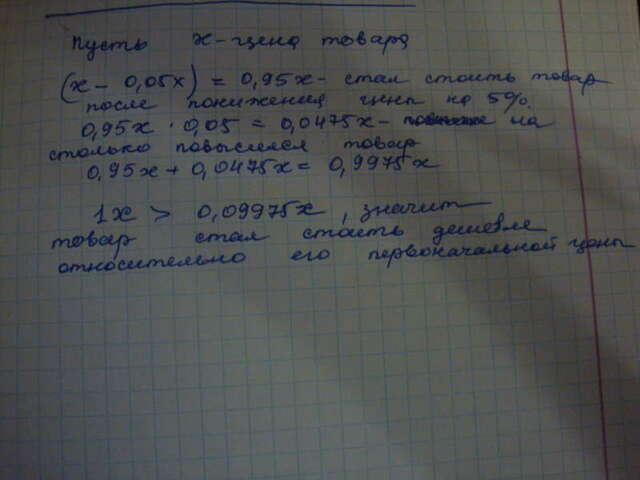 Пусть х - цена товара
(х - 0,05х) = 0,95х - стал стоить товар
после понижения цены на 5%.
0,95х · 0,05 = 0,0475х - на
столько повысился товар
0,95х + 0,0475х = 0,9975х
1х > 0,09975х, значит
товар стал стоить дешевле
относительно его первоначальной цены